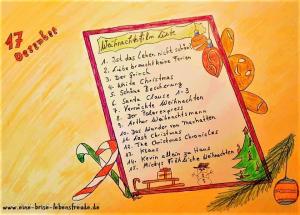 17
Dezember
Weihnachtsfilm Liste
1. Ist das Leben nicht schön
2. Liebe braucht keine Ferien
3. Der Grinch
4. White Christmas
5. Schöne Bescherung
6. Santa Clause 1-3
7. Verrückte Weihnachten
8. Der Polarexpress
9. Arthur Weihnachtsmann
10. Das Wunder von Manhattan
11. Last Christmas
12. The Christmas Chronicles
13. Klaus
14. Kevin allein zu Haus
15. Mickys fröhliche Weihnachten
www.eine-brise-lebensfreude.de